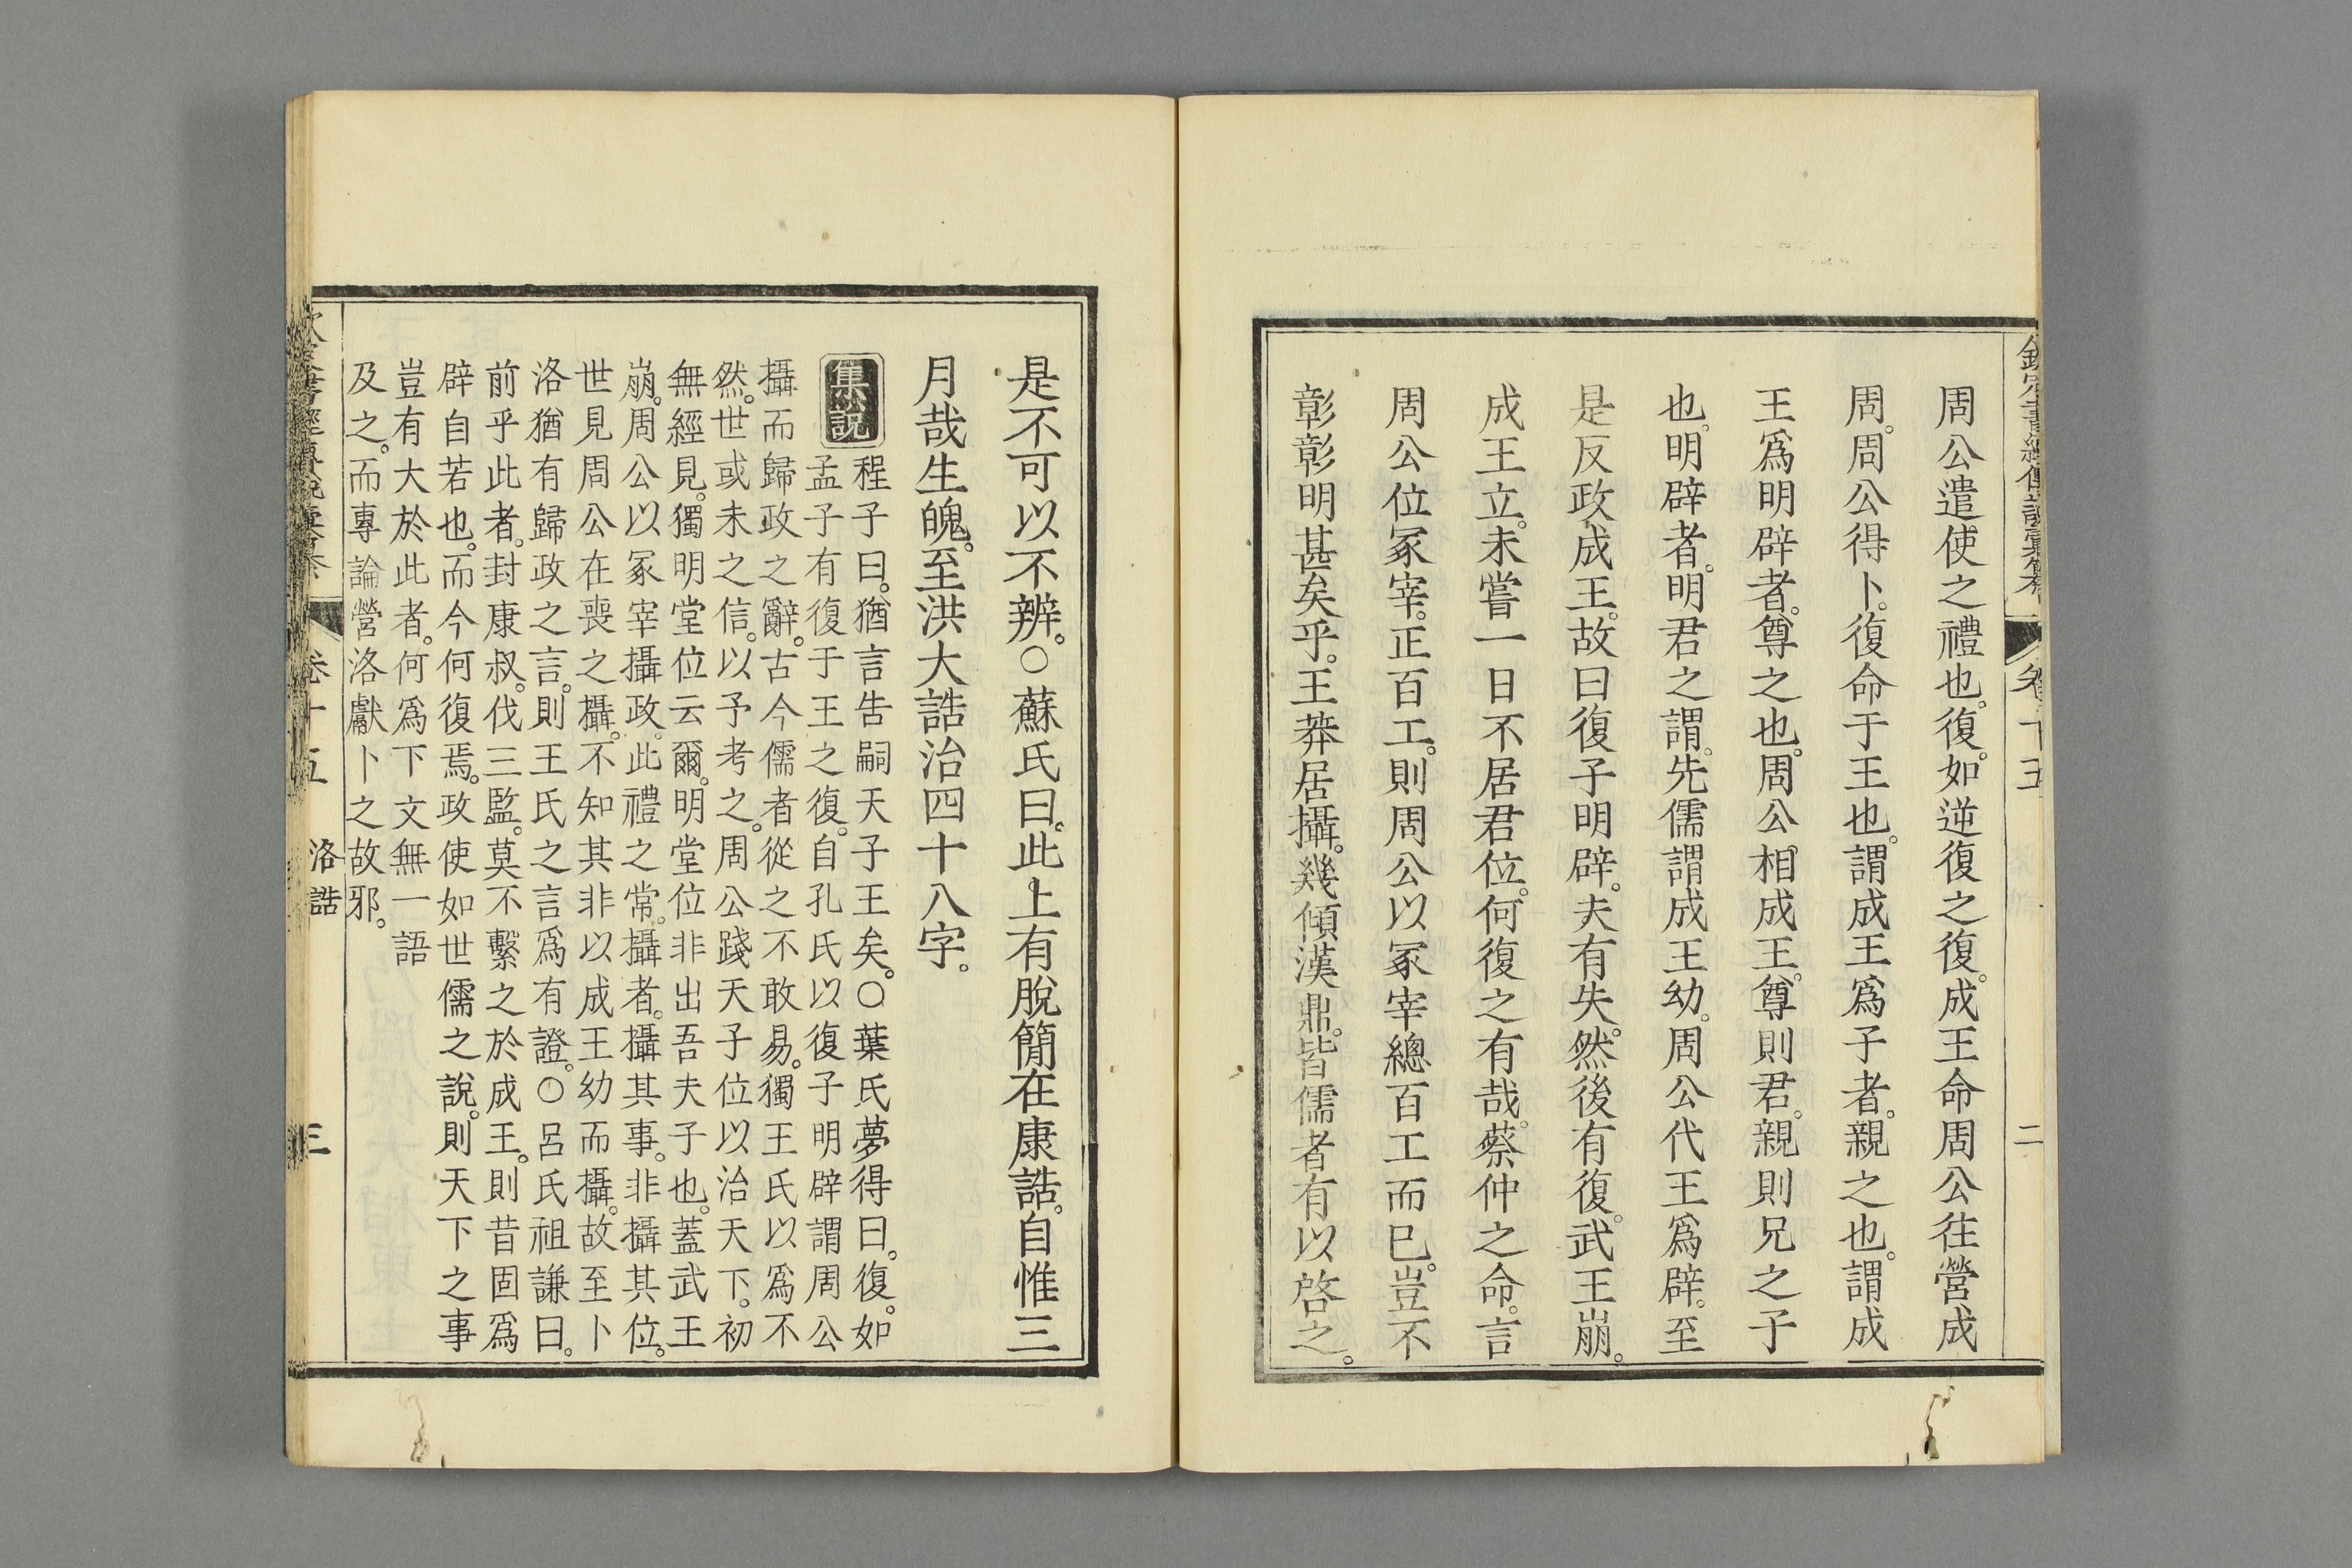 周公遣使之禮也。復。如逆復之復。成王命周公往營成
周。周公得卜。復命于王也。謂成王爲子者。親之也。謂成
王爲明辟者。尊之也。周公相成王。尊則君。親則兄之子
也。明辟者。明君之謂。先儒謂成王幼。周公代王爲辟。至
是反政成王。故曰復子明辟。夫有失。然後有復。武王崩。
成王立。未嘗一日不居君位。何復之有哉。蔡仲之命。言
周公位冢宰。正百工。則周公以冢宰總百工而已。豈不
彰彰明甚矣乎。王莽居攝。幾傾漢鼎。皆儒者有以啓之。
卷十五
二
是不可以不辨。○蘇氏曰。此上有脫簡在康誥。自惟三
月哉生魄。至洪大誥治四十八字。
集說
程子曰。猶言告嗣天子王矣。○葉氏夢得曰。復。如
孟子有復于王之復。自孔氏以復子明辟謂周公
攝而歸政之辭。古今儒者從之不敢易。獨王氏以爲不
然。世或未之信。以予考之。周公踐天子位以治天下。初
無經見。獨明堂位云爾。明堂位非出吾夫子也。蓋武王
崩。周公以冢宰攝政。此禮之常。攝者。攝其事。非攝其位。
世見周公在喪之攝。不知其非以成王幼而攝。故至卜
洛猶有歸政之言。則王氏之言爲有證。○呂氏祖謙曰。
前乎此者。封康叔。伐三監。莫不繫之於成王。則昔固爲
辟自若也。而今何復焉。政使如世儒之說。則天下之事
豈有大於此者。何爲下文無一語
及之。而專論營洛獻卜之故邪。
卷十五
洛誥
三